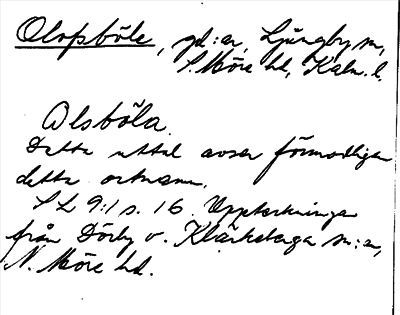 Olofsböle, gd:ar, Ljungby sn,
S. Möre hd, Kalm. l.
Olsböla.
Detta uttal avser förmodligen
detta ortnamn.
SL 9:1 s. 16. Uppteckningar
från Dörby o. Kläckeberga sn:ar,
N. Möre hd.